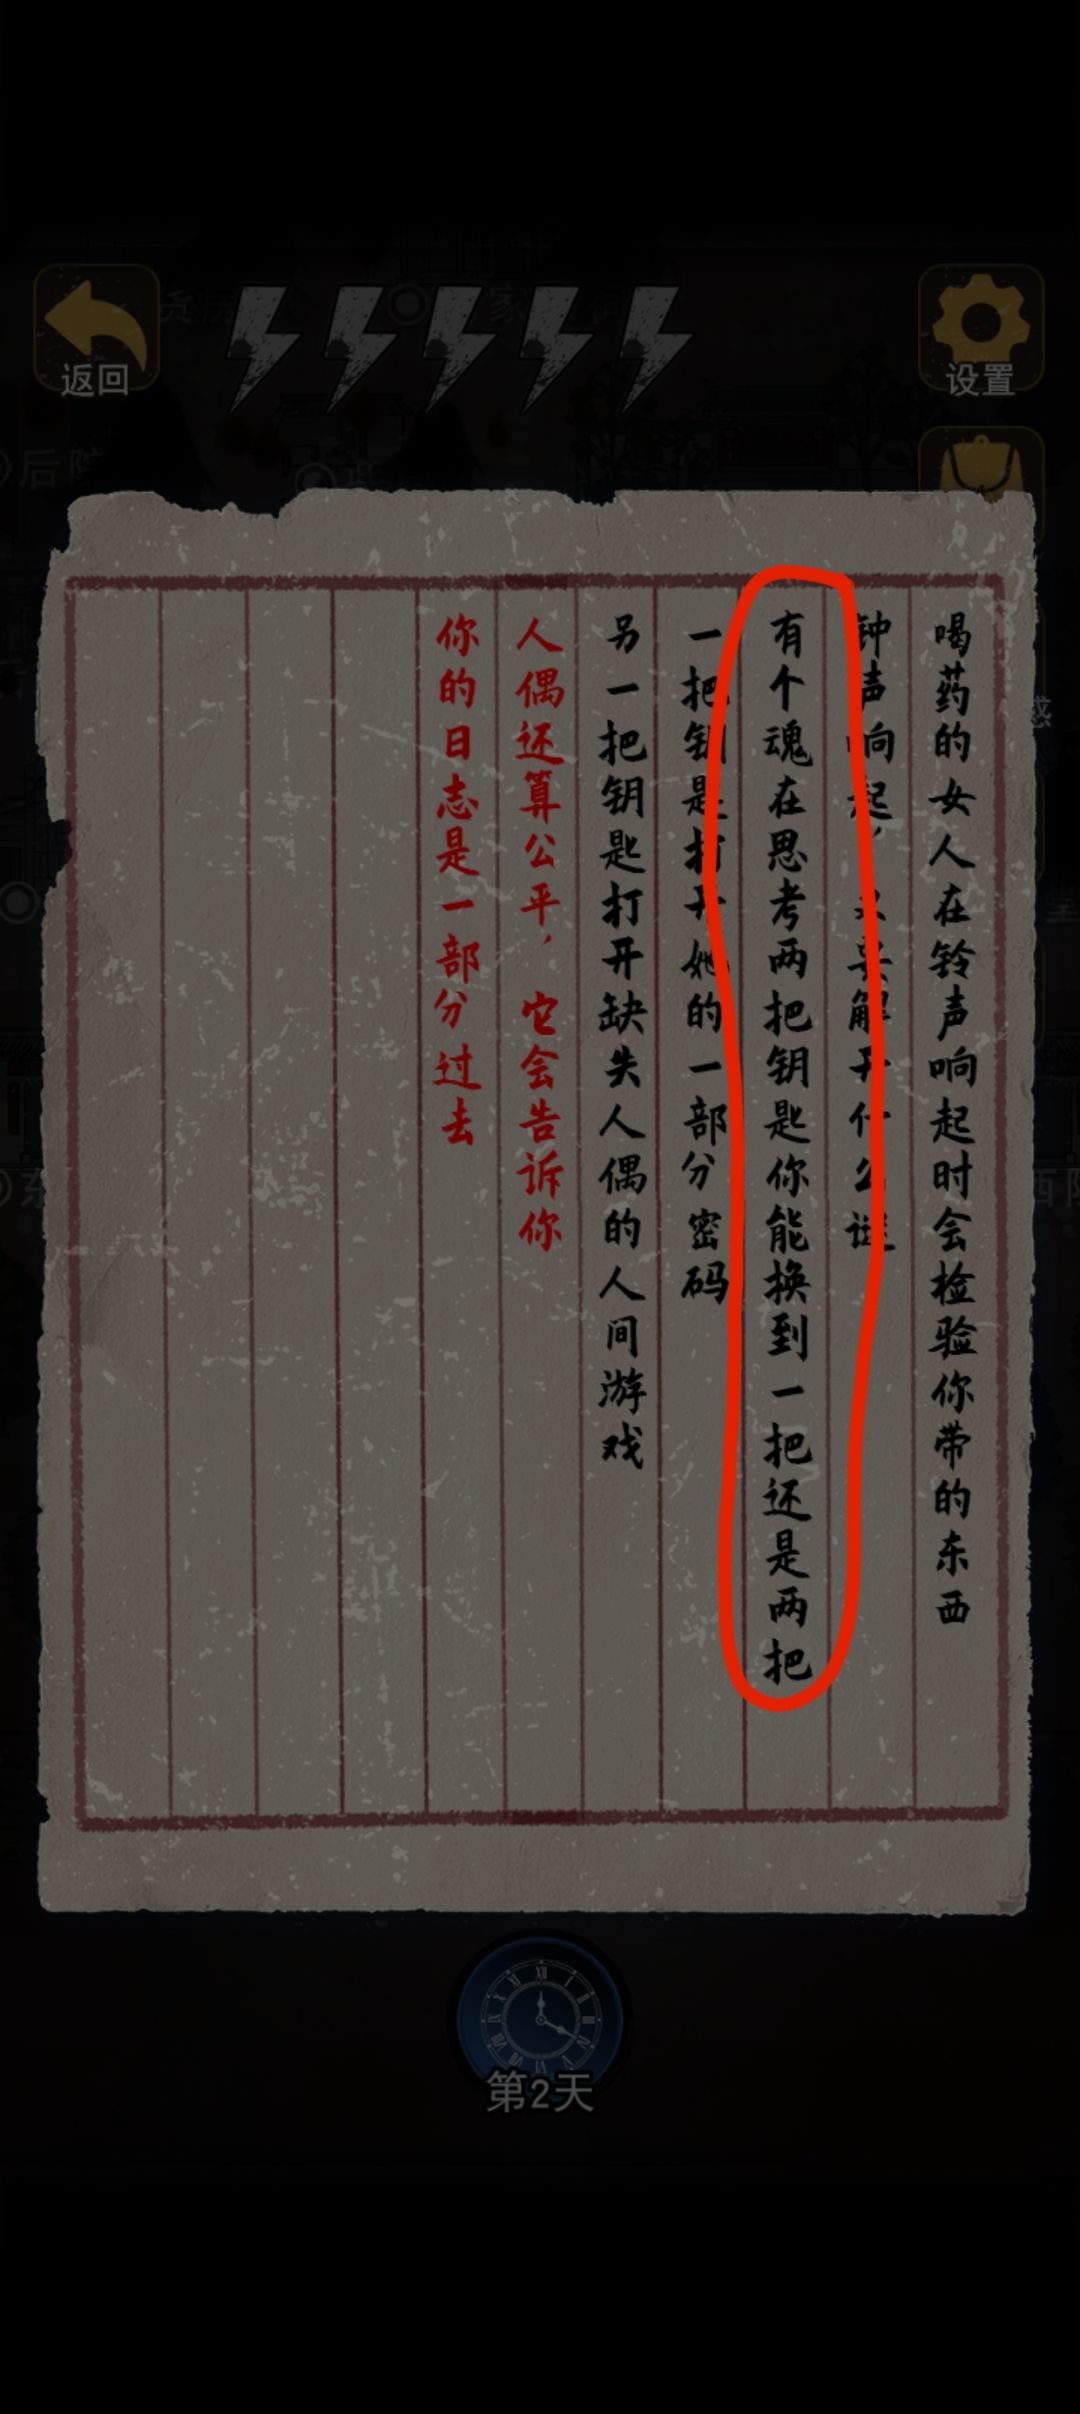 返回
设置
喝药的女人在铃声响起时会检验你带的东西
钟声响起，又要解开什么谜
有个魂在思考两把钥匙你能换到一把还是两把
一把钥是打开她的一部分密码
另一把钥匙打开缺失人偶的人间游戏
人偶还算公平，它会告诉你
你的日志是一部分过去
第2天